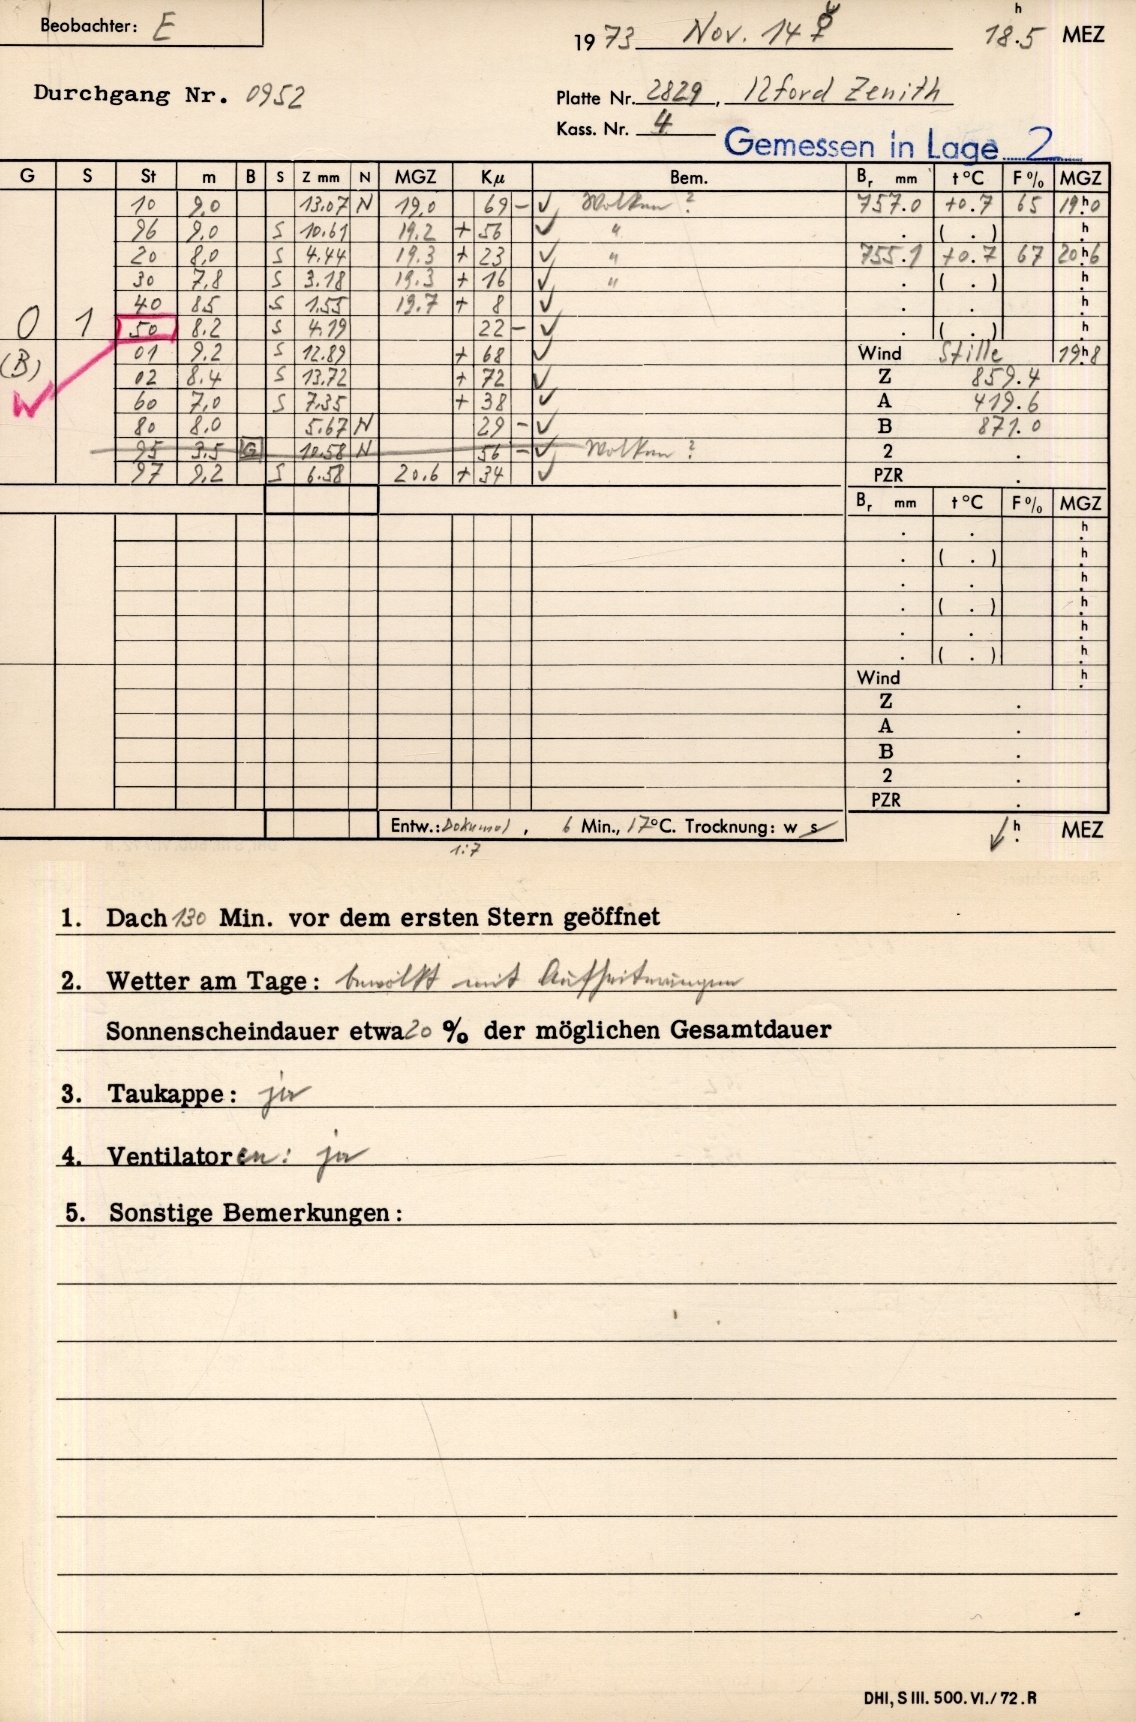 Beobachter: E
1973 Nov. 14 ☿ 18.5 h MEZ
Durchgang Nr. 0952
Platte Nr. 2829, Ilford Zenith
Kass. Nr. 4
Gemessen in Lage 2
G S St m B S Z mm N MGZ Kμ Bem. Br mm t °C F % MGZ
10 9,0 13.07 N 19,0 69 - ✓ Wolken ? 757.0 +0.7 65 19h0
96 9,0 S 10.61 19.2 + 56 ✓ " . ( . ) h.
20 8,0 S 4.44 19.3 + 23 ✓ " 755.1 +0.7 67 20h6
30 7,8 S 3.18 19.3 + 16 ✓ " . ( . ) h.
40 8.5 S 1.55 19.7 + 8 ✓ . . h.
0 1 50 8.2 S 4.19 22 - ✓ . ( . ) h.
(B) 01 9.2 S 12.89 + 68 ✓ Wind Stille 19h8
02 8.4 S 13.72 + 72 ✓ Z 859.4
60 7,0 S 7.35 + 38 ✓ A 419.6
80 8,0 5.67 N 29 - ✓ B 871.0
95 3.5 G 10.58 N 56 - ✓ Wolken ? 2 .
97 9,2 S 6.58 20.6 + 34 ✓ PZR .
Br mm t °C F % MGZ
. . h.
. ( . ) h.
. . h.
. ( . ) h.
. . h.
. ( . ) h.
Wind h.
Z .
A .
B .
2 .
PZR .
Entw.: Dokumol, 6 Min., 17°C. Trocknung: w s h. MEZ
1:7
1. Dach 130 Min. vor dem ersten Stern geöffnet
2. Wetter am Tage: bewölkt mit Aufheiterungen
Sonnenscheindauer etwa 20 % der möglichen Gesamtdauer
3. Taukappe: ja
4. Ventilatoren: ja
5. Sonstige Bemerkungen:
DHI, S III. 500. VI./72. R